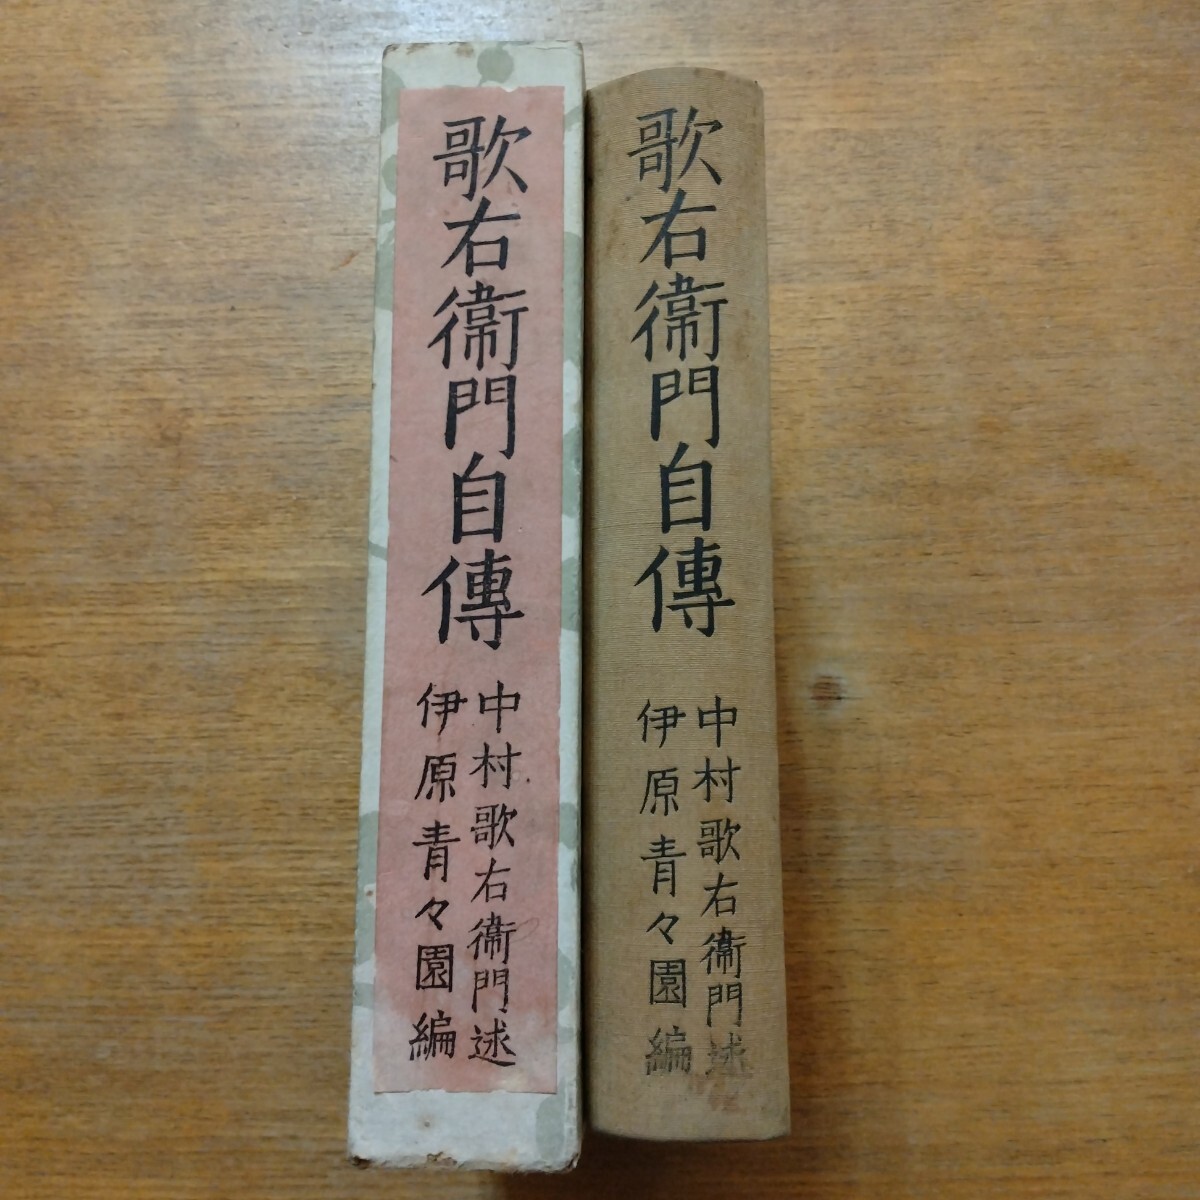 歌右衞門自傳
中村歌右衞門述
伊原青々園編
歌右衞門自傳
中村歌右衞門述
伊原青々園編